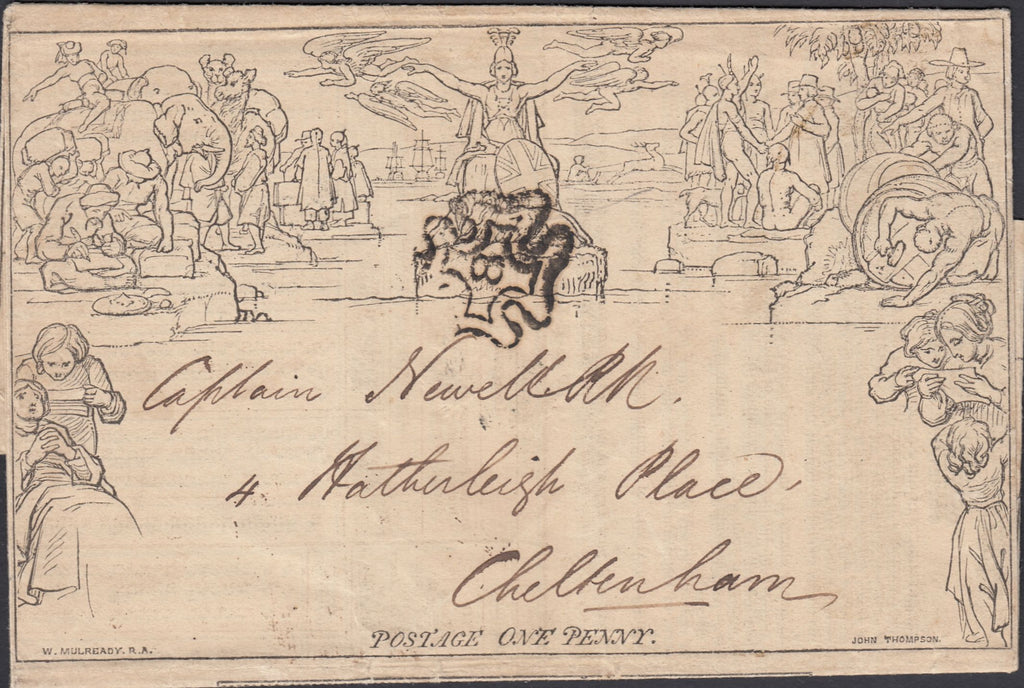 8
Captain Newell RN.
4 Hatherleigh Place.
Cheltenham
POSTAGE ONE PENNY.
W. MULREADY. R.A.
JOHN THOMPSON.